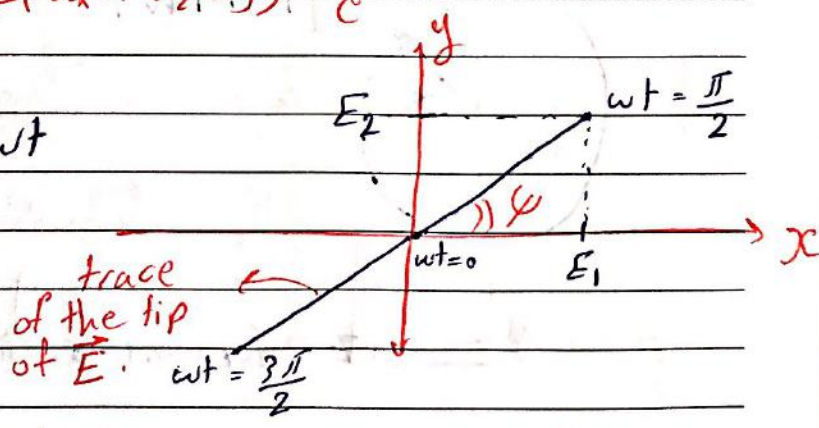 y
ωt = π/2
E₂
ωt
ψ
x
ωt=0
E₁
trace
of the tip
of E⃗.
ωt = 3π/2